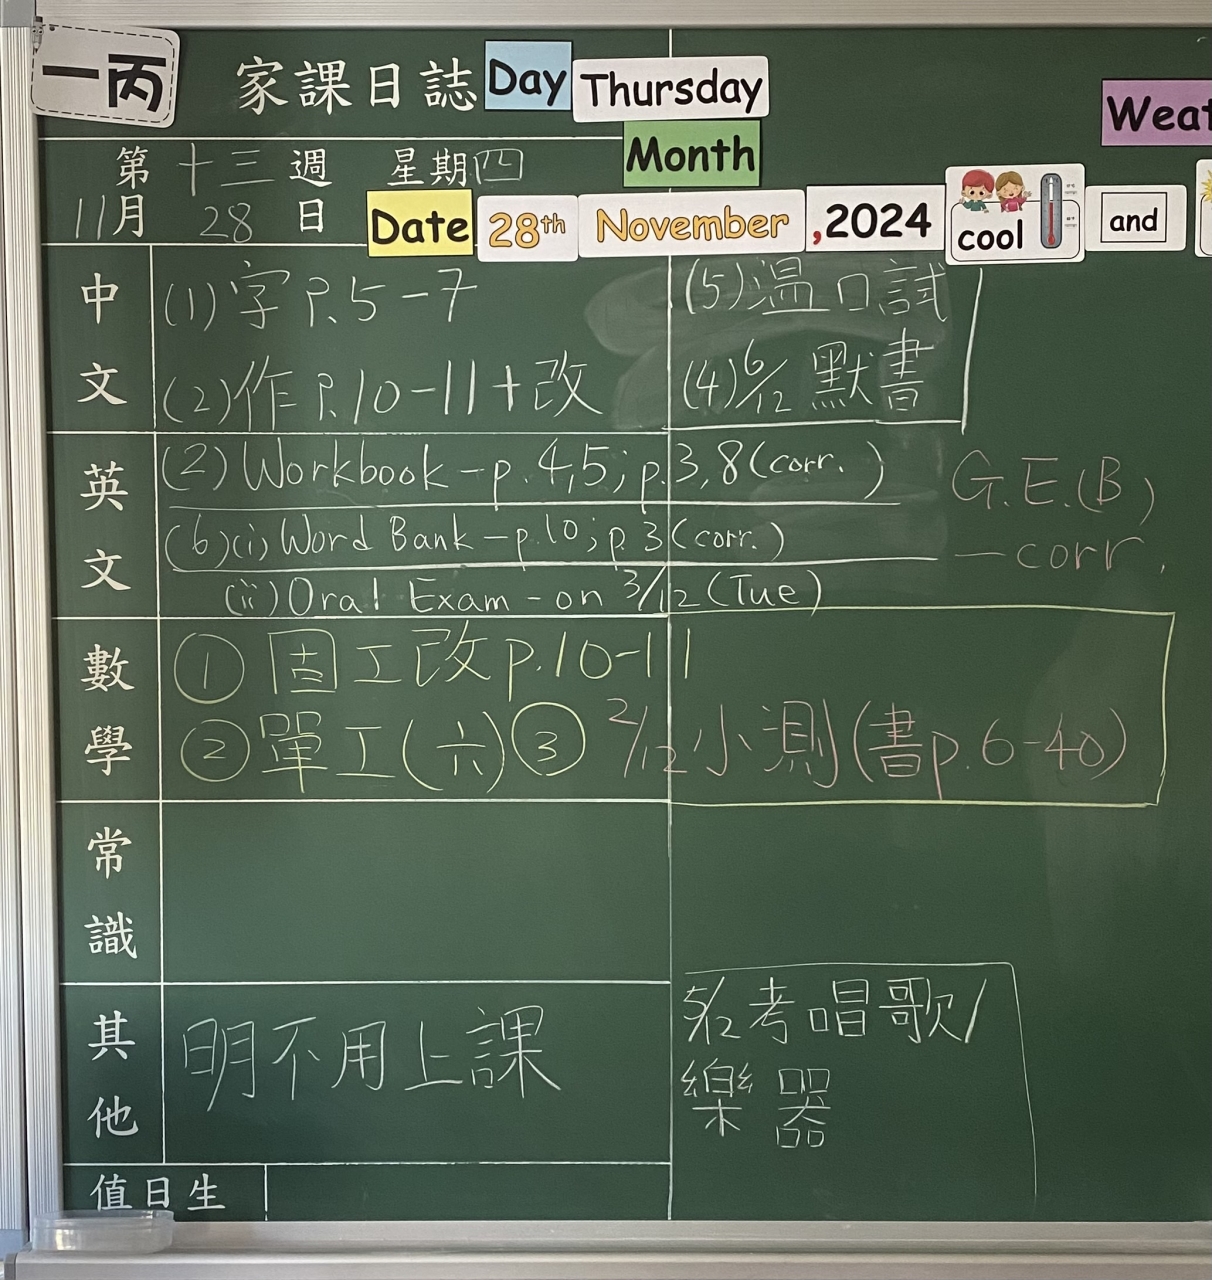 一丙 家課日誌 Day Thursday
Weat
Month
第十三週 星期四
11月28日 Date 28th November ,2024 cool and
中文 (1)字P.5-7 (5)溫口試
(2)作P.10-11+改 (4)6/12默書
英文 (2) Workbook - p.4,5; p.3,8 (corr.)
G.E.(B)
(6)(i) Word Bank - p.10; p.3 (corr.)
- corr.
(ii) Oral Exam - on 3/12 (Tue)
數學 ① 固工改p.10-11
② 單工(六) ③ 2/12小測(書p.6-40)
常識
其他 明不用上課 5/12考唱歌/
樂器
值日生